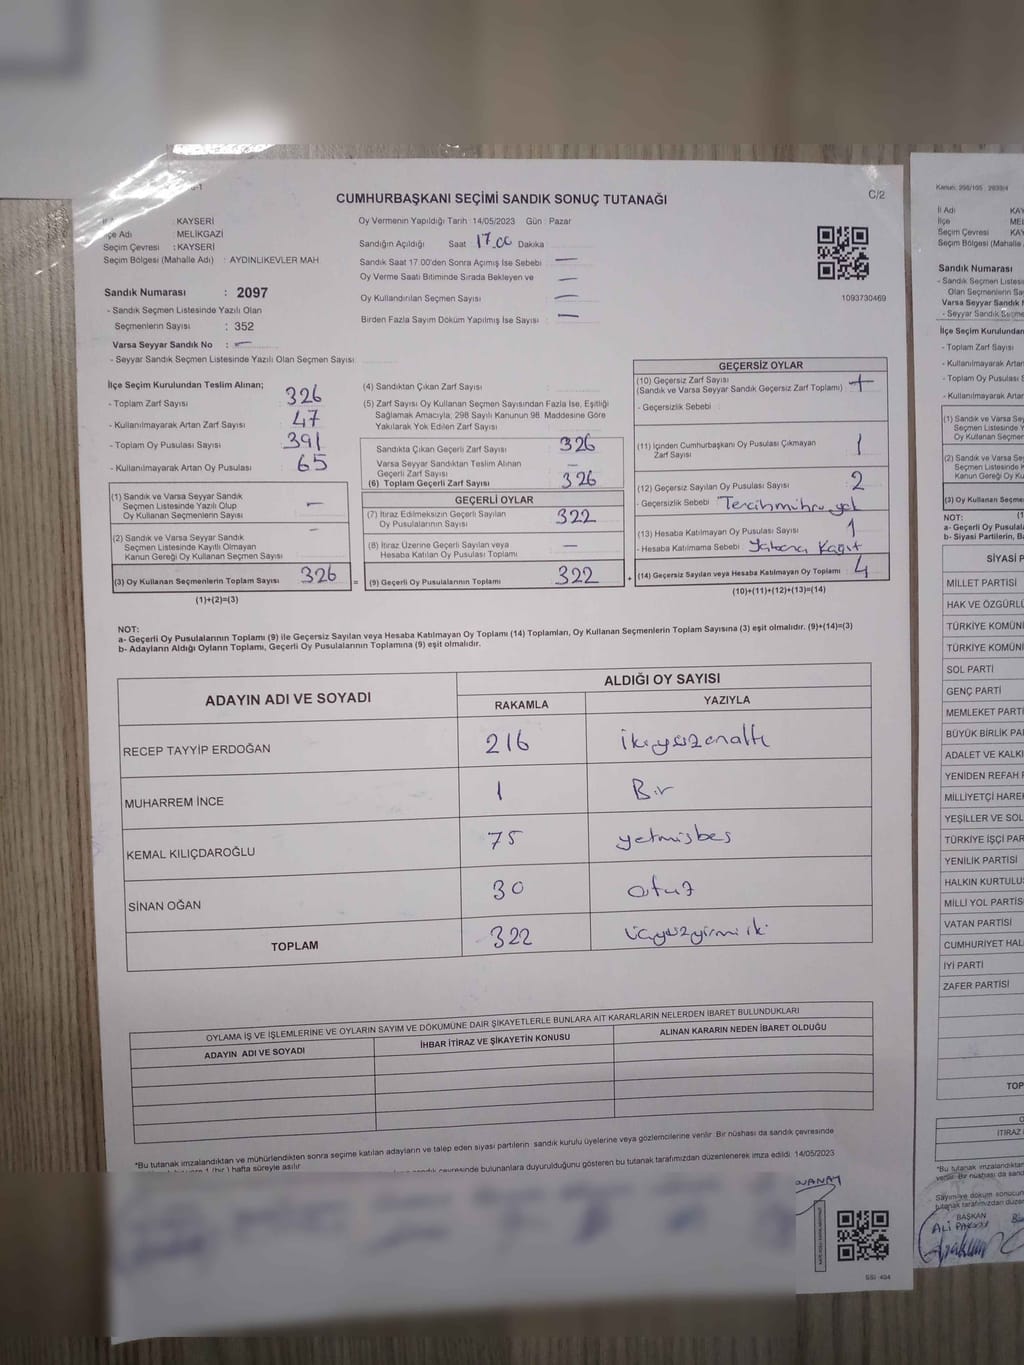 CUMHURBAŞKANI SEÇİMİ SANDIK SONUÇ TUTANAĞI
C/2
: KAYSERİ
İlçe Adı : MELİKGAZİ
Seçim Çevresi : KAYSERİ
Seçim Bölgesi (Mahalle Adı) : AYDINLIKEVLER MAH
Sandık Numarası : 2097
- Sandık Seçmen Listesinde Yazılı Olan
Seçmenlerin Sayısı : 352
Varsa Seyyar Sandık No : —
- Seyyar Sandık Seçmen Listesinde Yazılı Olan Seçmen Sayısı
Oy Vermenin Yapıldığı Tarih : 14/05/2023 Gün : Pazar
Sandığın Açıldığı Saat 17.00 Dakika
Sandık Saat 17.00'den Sonra Açımış İse Sebebi —
Oy Verme Saati Bitiminde Sırada Bekleyen ve —
Oy Kullandırılan Seçmen Sayısı —
Birden Fazla Sayım Döküm Yapılmış İse Sayısı : —
1093730469
İlçe Seçim Kurulundan Teslim Alınan;
- Toplam Zarf Sayısı : 326
- Kullanılmayarak Artan Zarf Sayısı : 47
- Toplam Oy Pusulası Sayısı : 391
- Kullanılmayarak Artan Oy Pusulası : 65
(1) Sandık ve Varsa Seyyar Sandık
Seçmen Listesinde Yazılı Olup
Oy Kullanan Seçmenlerin Sayısı —
(2) Sandık ve Varsa Seyyar Sandık
Seçmen Listesinde Kayıtlı Olmayan
Kanun Gereği Oy Kullanan Seçmenlerin Sayısı —
(3) Oy Kullanan Seçmenlerin Toplam Sayısı 326 =
(1)+(2)=(3)
(4) Sandıktan Çıkan Zarf Sayısı
(5) Zarf Sayısı Oy Kullanan Seçmen Sayısından Fazla İse, Eşitliği
Sağlamak Amacıyla, 298 Sayılı Kanunun 98. Maddesine Göre
Yakılarak Yok Edilen Zarf Sayısı
Sandıkta Çıkan Geçerli Zarf Sayısı 326
Varsa Seyyar Sandıktan Teslim Alınan
Geçerli Zarf Sayısı —
(6) Toplam Geçerli Zarf Sayısı 326
GEÇERLİ OYLAR
(7) İtiraz Edilmeksizin Geçerli Sayılan
Oy Pusulalarının Sayısı 322
(8) İtiraz Üzerine Geçerli Sayılan veya
Hesaba Katılan Oy Pusulası Toplamı —
(9) Geçerli Oy Pusulalarının Toplamı 322 +
GEÇERSİZ OYLAR
(10) Geçersiz Zarf Sayısı
(Sandık ve Varsa Seyyar Sandık Geçersiz Zarf Toplamı)
- Geçersizlik Sebebi
(11) İçinden Cumhurbaşkanı Oy Pusulası Çıkmayan
Zarf Sayısı 1
(12) Geçersiz Sayılan Oy Pusulası Sayısı : 2
- Geçersizlik Sebebi : Tercih mührü yok
(13) Hesaba Katılmayan Oy Pusulası Sayısı 1
- Hesaba Katılmama Sebebi Yabancı Kağıt
(14) Geçersiz Sayılan veya Hesaba Katılmayan Oy Toplamı 4
(10)+(11)+(12)+(13)=(14)
NOT:
a- Geçerli Oy Pusulalarının Toplamı (9) ile Geçersiz Sayılan veya Hesaba Katılmayan Oy Toplamı (14) Toplamları, Oy Kullanan Seçmenlerin Toplam Sayısına (3) eşit olmalıdır. (9)+(14)=(3)
b- Adayların Aldığı Oyların Toplamı, Geçerli Oy Pusulalarının Toplamına (9) eşit olmalıdır.
ADAYIN ADI VE SOYADI
ALDIĞI OY SAYISI
RAKAMLA YAZIYLA
RECEP TAYYİP ERDOĞAN 216 ikiyüzonaltı
MUHARREM İNCE 1 Bir
KEMAL KILIÇDAROĞLU 75 yetmişbeş
SİNAN OĞAN 30 otuz
TOPLAM 322 üçyüzyirmiiki
OYLAMA İŞ VE İŞLEMLERİNE VE OYLARIN SAYIM VE DÖKÜMÜNE DAİR ŞİKAYETLERLE BUNLARA AİT KARARLARIN NELERDEN İBARET BULUNDUKLARI
ADAYIN ADI VE SOYADI İHBAR İTİRAZ VE ŞİKAYETİN KONUSU ALINAN KARARIN NEDEN İBARET OLDUĞU
*Bu tutanak imzalandıktan ve mühürlendikten sonra seçime katılan adayların ve talep eden siyasi partilerin sandık kurulu üyelerine veya gözlemcilerine verilir. Bir nüshası da sandık çevresinde
1 (bir) hafta süreyle asılır.
sandık çevresinde bulunanlara duyurulduğunu gösteren bu tutanak tarafımızdan düzenlenerek imza edildi. 14/05/2023
Kanun: 298/105
İl Adı
İlçe
Seçim Çevresi
Seçim Bölgesi (Mahalle
Sandık Numarası
Varsa Seyyar Sandık
İlçe Seçim Kurulundan
- Toplam Zarf Sayısı
- Kullanılmayarak Artan
- Toplam Oy Pusulası S
- Kullanılmayarak Artan
(1) Sandık ve Varsa Se
Seçmen Listesinde Y
Oy Kullanan Seçmen
(2) Sandık ve Varsa Se
Seçmen Listesinde K
Kanun Gereği Oy Ku
(3) Oy Kullanan Seçme
NOT:
a- Geçerli Oy Pusula
b- Siyasi Partilerin, B
SİYASİ P
MİLLET PARTİSİ
HAK VE ÖZGÜRLÜ
TÜRKİYE KOMÜNİ
TÜRKİYE KOMÜNİ
SOL PARTİ
GENÇ PARTİ
MEMLEKET PARTİ
BÜYÜK BİRLİK PA
ADALET VE KALKI
YENİDEN REFAH P
MİLLİYETÇİ HARE
YEŞİLLER VE SOL
TÜRKİYE İŞÇİ PAR
YENİLİK PARTİSİ
HALKIN KURTULU
MİLLİ YOL PARTİS
VATAN PARTİSİ
CUMHURİYET HAL
İYİ PARTİ
ZAFER PARTİSİ
TOP
İTİRAZ
*Bu tutanak imzalandıktan
BAŞKAN